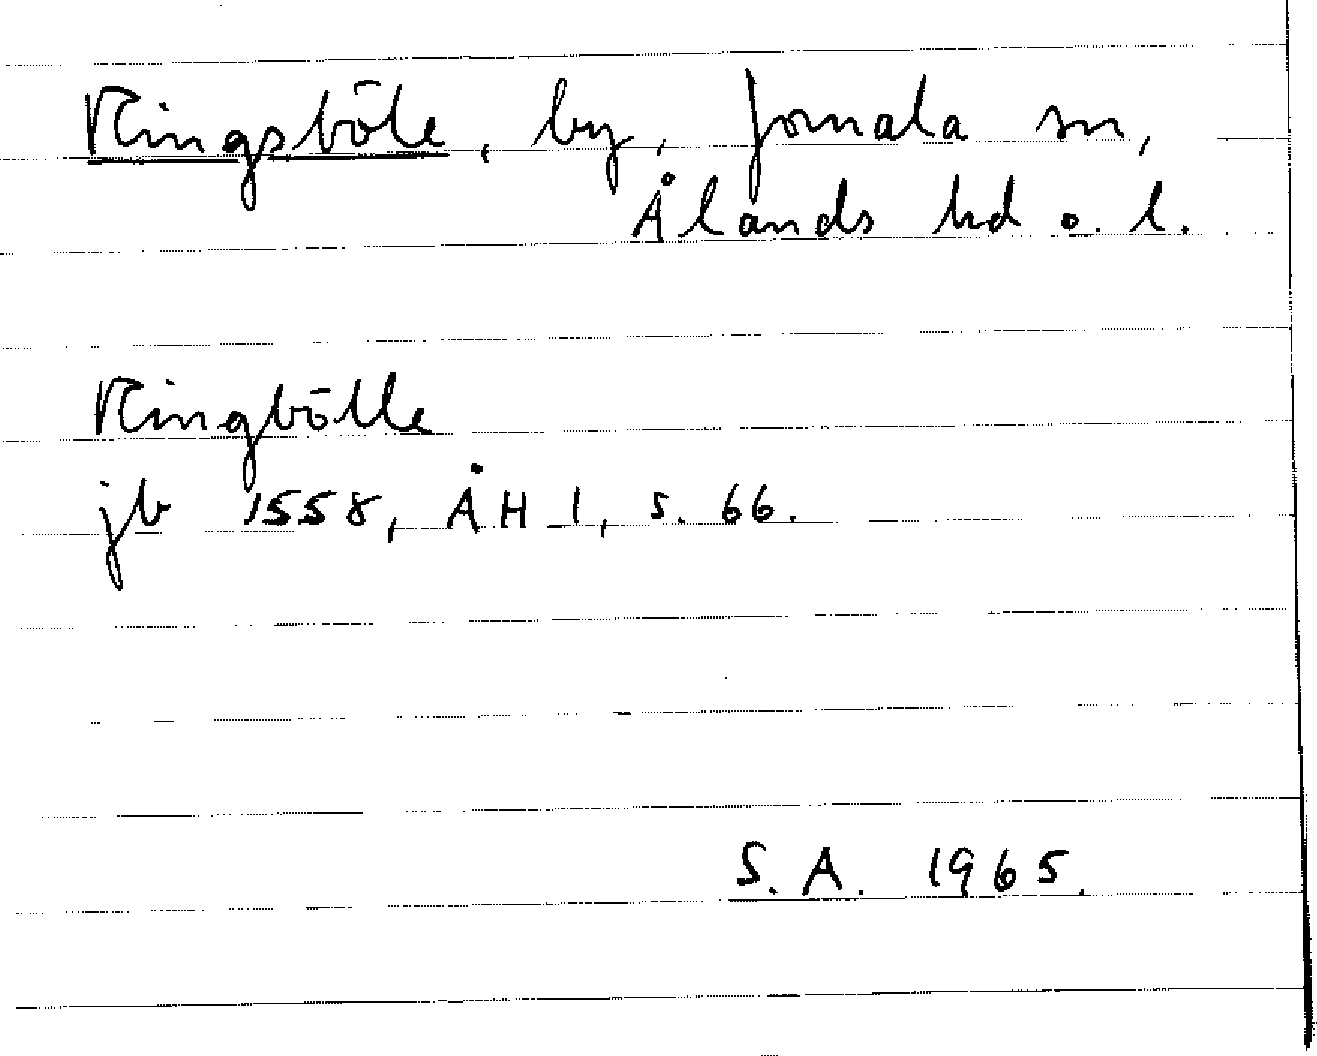 Ringsböle, by, Jomala sn,
Ålands hd o. l.
Ringbölle
jb 1558, ÅH 1, s. 66.
S. A. 1965.